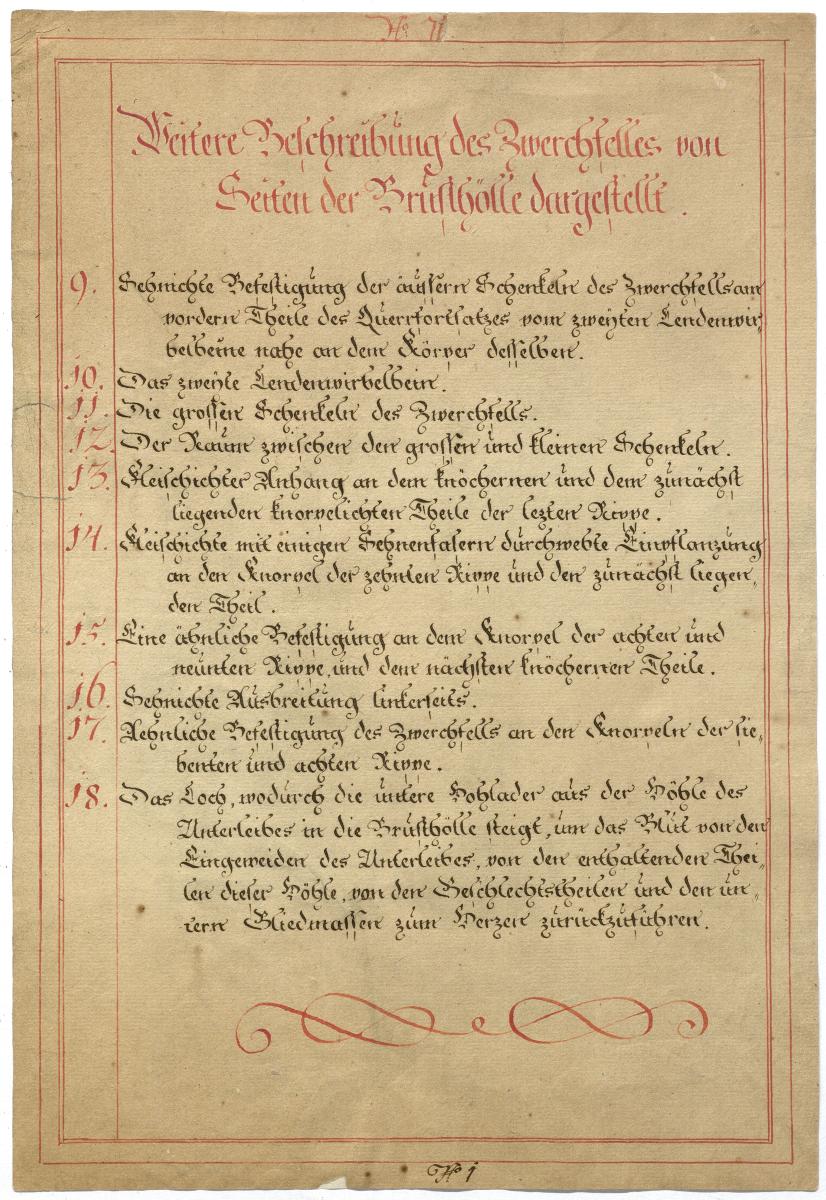 No 71
Weitere Beschreibung des Zwerchfelles von
Seiten der Brusthölle dargestellt.
9. Sehnichte Befestigung der äussern Schenkeln des Zwerchfells am
vordern Theile des Querrfortsatzes vom zweyten Lendenwir,
belbeine nahe an dem Körper desselben.
10. Das zweyte Lendenwirbelbein.
11. Die grossen Schenkeln des Zwerchfells.
12. Der Raum zwischen den grossen und kleinen Schenkeln.
13. Fleischichter Anhang an dem knöchernen und dem zunächst
liegenden knorpelichten Theile der lezten Rippe.
14. Fleischichte mit einigen Sehnenfasern durchwebte Einpflanzung
an den Knorpel der zehnten Rippe und den zunächst liegen,
den Theil.
15. Eine ähnliche Befestigung an dem Knorpel der achten und
neunten Rippe, und dem nächsten knöchernen Theile.
16. Sehnichte Ausbreitung linkerseits.
17. Aehnliche Befestigung des Zwerchfells an den Knorpeln der sie,
benten und achten Rippe.
18. Das Loch, wodurch die untere Hohlader aus der Höhle des
Unterleibes in die Brusthölle steigt, um das Blut von den
Eingeweiden des Unterleibes, von den enthaltenden Thei,
len dieser Höhle, von den Geschlechtstheilen und den un,
tern Gliedmassen zum Herzen zurückzuführen.
No 1